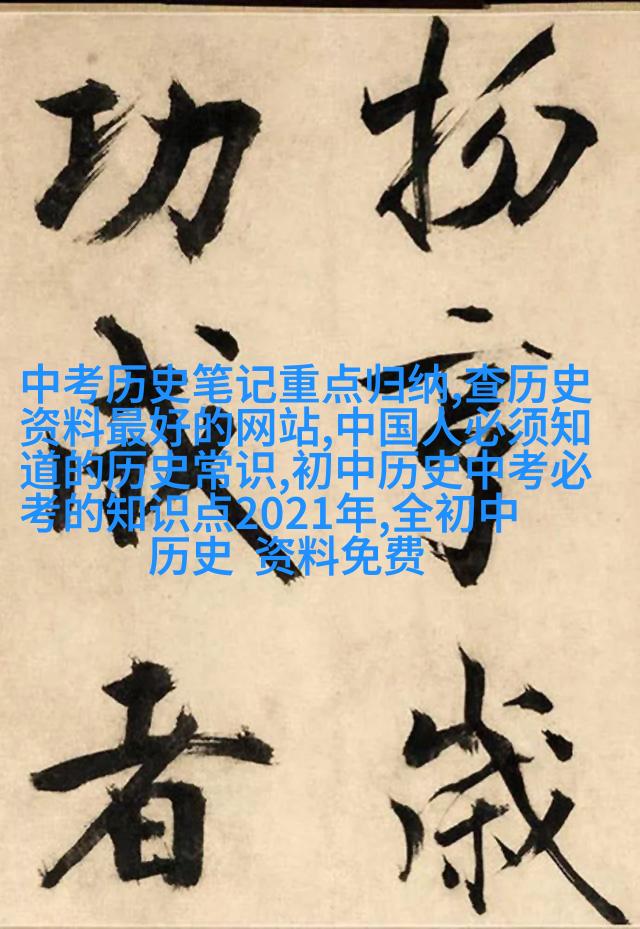 物亨歲
功成者
中考历史笔记重点归纳,查历史
资料最好的网站,中国人必须知
道的历史常识,初中历史中考必
考的知识点2021年,全初中
历史  资料免费